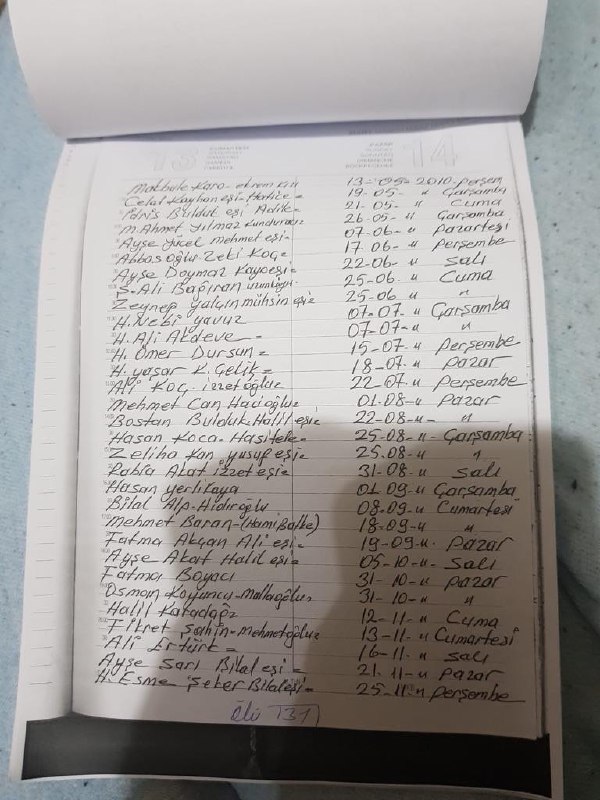 13 14
Makbule Kara- ekrem kızı 13-05-2010 perşem
Celal Kayhan eşi-Hatice= 19-05- " Çarşamba
İdris Buldut eşi Adile= 21-05- " Cuma
M.Ahmet yılmaz kunduracı 26-05- " Çarşamba
Ayşe yücel mehmet eşi- 07-06- " pazartesi
Abbasoğlu Zeki Koç= 17-06- " perşembe
Ayşe Doymaz Kaya eşi- 22-06- " Salı
S.Ali Bağıran 25-06- " Cuma
Zeynep yalçın mühsin eşi= 25-06 " "
H.Nebi yavuz 07-07- " Çarşamba
H. Ali Akdeve = 07-07-" "
H. Ömer Dursun= 15-07- " perşembe
H. yaşar K. Çelik= 18-07- " pazar
Ali Koç. izzetoğlu= 22-07- " perşembe
Mehmet Can Hacıoğlu= 01-08-" pazar
Bostan Bulduk-Halil eşi= 22-08-"- "
Hasan Koca- 25-08-"- Çarşamba
Zeliha Kan yusuf eşi= 25-08-" "
Rabia Akat izzet eşi= 31-08-" Salı
Hasan yerlikaya 01-09-" Çarşamba
Bilal Alp-Hıdıroğlu 08-09-" Cumartesi
Mehmet Baran-(Hamiş 18-09-" "
Fatma Akçan Ali eşi= 19-09-". pazar
Ayşe Akat Halil eşi= 05-10-" Salı
Fatma Boyacı 31-10-" pazar
Osman Koyuncu-Mollaoğlu= 31-10-" "
Halil Karadağ= 12-11-" Cuma
Fikret Şahin-Mehmetoğlu= 13-11-" Cumartesi
Ali Ertürk= 16-11-" Salı
Ayşe Sarı Bilal eşi= 21-11-" pazar
H. Esme Şeker Bilal eşi= 25-11-" perşembe